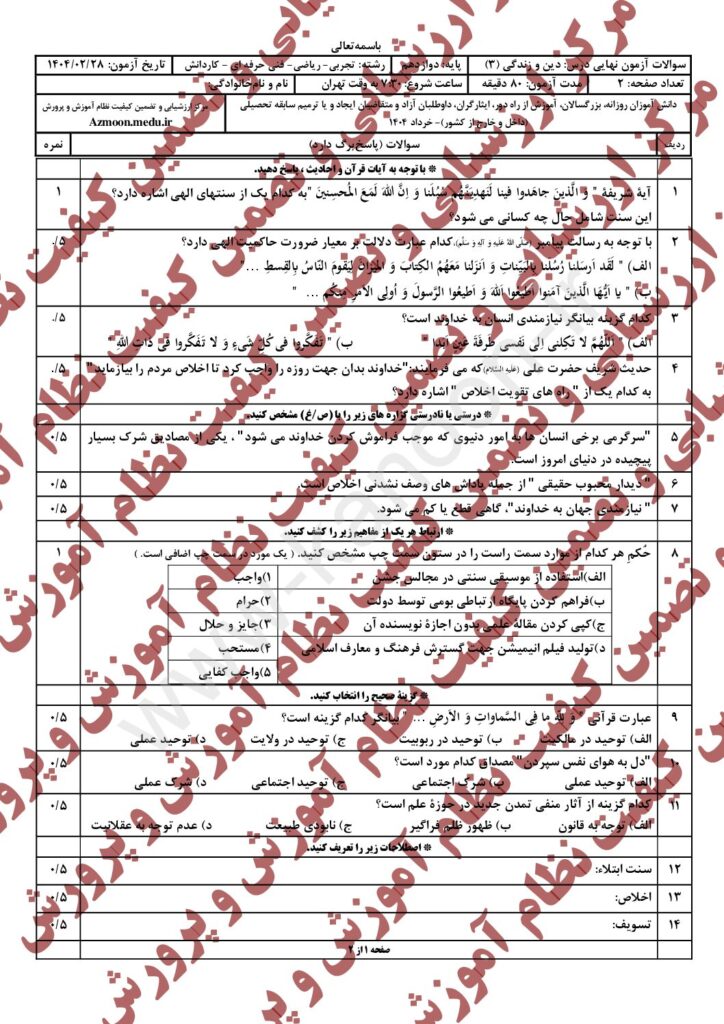 باسمه‌تعالی
سوالات آزمون نهایی درس: دین و زندگی (۳)
پایه: دوازدهم
رشته: تجربی- ریاضی- فنی حرفه ای- کاردانش
تاریخ آزمون: ۱۴۰۴/۰۲/۲۸
تعداد صفحه: ۲
مدت آزمون: ۸۰ دقیقه
ساعت شروع: ۷:۳۰ به وقت تهران
نام و نام‌خانوادگی:
دانش آموزان روزانه، بزرگسالان، آموزش از راه دور، ایثارگران، داوطلبان آزاد و متقاضیان ایجاد و یا ترمیم سابقه تحصیلی
(داخل و خارج از کشور)- خرداد ۱۴۰۴
مرکز ارزشیابی و تضمین کیفیت نظام آموزش و پرورش
Azmoon.medu.ir
ردیف
سوالات (پاسخ‌برگ دارد)
نمره
* با توجه به آیات قرآن و احادیث ، پاسخ دهید.
۱ آیهٔ شریفهٔ " وَ الَّذینَ جاهَدوا فینا لَنَهدِیَنَّهُم سُبُلَنا وَ اِنَّ اللهَ لَمَعَ الْمُحسِنینَ "به کدام یک از سنتهای الهی اشاره دارد؟ ۱
این سنت شامل حال چه کسانی می شود؟
۲ با توجه به رسالت پیامبر (صلی الله علیه و آله و سلم)،کدام عبارت دلالت بر معیار ضرورت حاکمیت الهی دارد؟ ۰/۵
الف) " لَقَد اَرسَلنا رُسُلَنا بِالبَیِّناتِ وَ اَنزَلنا مَعَهُمُ الکِتابَ وَ المیزانَ لِیَقومَ النّاسُ بِالقِسطِ ... "
ب) " یا اَیُّهَا الَّذینَ آمَنوا اَطیعُوا اللهَ وَ اَطیعُوا الرَّسولَ وَ اُولِی الاَمرِ مِنکُم ... "
۳ کدام گزینه بیانگر نیازمندی انسان به خداوند است؟ ۰/۵
الف) " اَللّهُمَّ لا تَکِلنی اِلی نَفسی طَرفَةَ عَینٍ اَبَدا " ب) " تَفَکَّروا فی کُلِّ شَیءٍ وَ لا تَفَکَّروا فی ذاتِ اللهِ "
۴ حدیث شریف حضرت علی (علیه السلام)که می فرمایند:"خداوند بدان جهت روزه را واجب کرد تا اخلاص مردم را بیازماید" ۰/۵
به کدام یک از " راه های تقویت اخلاص " اشاره دارد؟
* درستی یا نادرستی گزاره های زیر را با (ص /غ) مشخص کنید.
۵ "سرگرمی برخی انسان ها به امور دنیوی که موجب فراموش کردن خداوند می شود" ، یکی از مصادیق شرک بسیار ۰/۵
پیچیده در دنیای امروز است.
۶ " دیدار محبوب حقیقی " از جمله پاداش های وصف نشدنی اخلاص است. ۰/۵
۷ " نیازمندی جهان به خداوند"، گاهی قطع یا کم می شود. ۰/۵
* ارتباط هر یک از مفاهیم زیر را کشف کنید.
۸ حُکمِ هر کدام از موارد سمت راست را در ستون سمت چپ مشخص کنید. ( یک مورد در سمت چپ اضافی است. ) ۱
الف)استفاده از موسیقی سنتی در مجالس جشن ۱)واجب
ب)فراهم کردن پایگاه ارتباطی بومی توسط دولت ۲)حرام
ج)کپی کردن مقالهٔ علمی بدون اجازهٔ نویسنده آن ۳)جایز و حلال
د)تولید فیلم انیمیشن جهت گسترش فرهنگ و معارف اسلامی ۴)مستحب
۵)واجب کفایی
* گزینهٔ صحیح را انتخاب کنید.
۹ عبارت قرآنی " وَ لِلّهِ ما فِی السَّماواتِ وَ الاَرضِ ... " بیانگر کدام گزینه است؟ ۰/۵
الف) توحید در مالکیت ب) توحید در ربوبیت ج) توحید در ولایت د) توحید عملی
۱۰ "دل به هوای نفس سپردن" مصداق کدام مورد است؟ ۰/۵
الف) توحید عملی ب) شرک اجتماعی ج) توحید اجتماعی د) شرک عملی
۱۱ کدام گزینه از آثار منفی تمدن جدید در حوزهٔ علم است؟ ۰/۵
الف) توجه به قانون ب) ظهور ظلم فراگیر ج) نابودی طبیعت د) عدم توجه به عقلانیت
* اصطلاحات زیر را تعریف کنید.
۱۲ سنت ابتلاء: ۰/۵
۱۳ اخلاص: ۰/۵
۱۴ تسویف: ۰/۵
صفحه ۱ از ۲
مرکز ارزشیابی و تضمین کیفیت نظام آموزش و پرورش